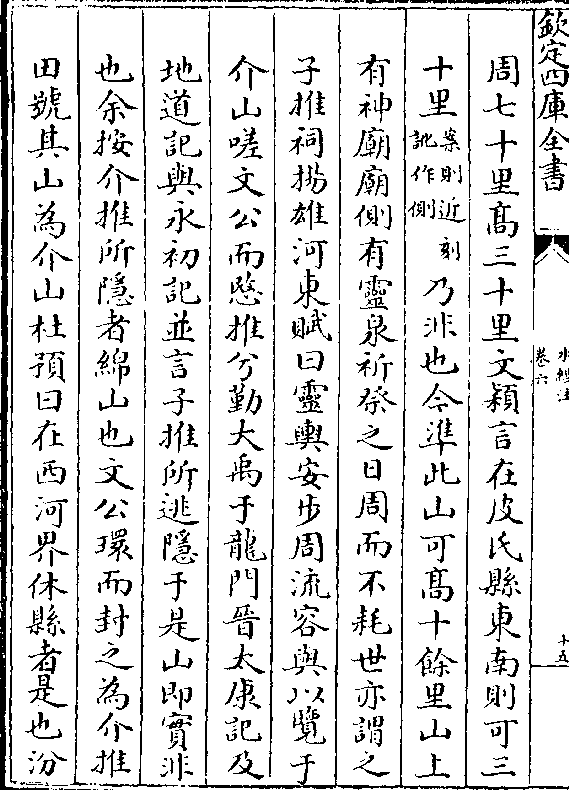 欽定四庫全書
水經注
卷六
十五
周七十里髙三十里文穎言在皮氏縣東南則可三
十里案則近刻訛作側乃非也今準此山可髙十餘里山上
有神廟廟側有靈泉祈祭之日周而不耗世亦謂之
子推祠揚雄河東賦曰靈輿安步周流容與以覽于
介山嗟文公而愍推兮勤大禹于龍門晉太康記及
地道記與永初記並言子推所逃隱于是山即實非
也余按介推所隱者綿山也文公環而封之為介推
田號其山為介山杜預曰在西河界休縣者是也汾